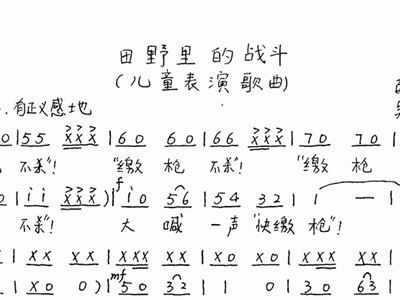 田野里的战斗
(儿童表演歌曲)
、有正义感地
0 | 5 5 X X X | 6 0 6 0 | 6 6 X X X | 7 0 7 0
不杀"! "缴 枪 不杀"! "缴 枪
0 | i i X X X ) | f i 0 5 6 | 5 4 3 2 | 1 — |
不杀"! 大 喊 一声 "快缴 枪"!
X X | X X X X X | X X X X | X X X X X | X X X X
X X | X 0 0 ) | mf 5 0 3 2 | 1 0 | 3 0 6 3